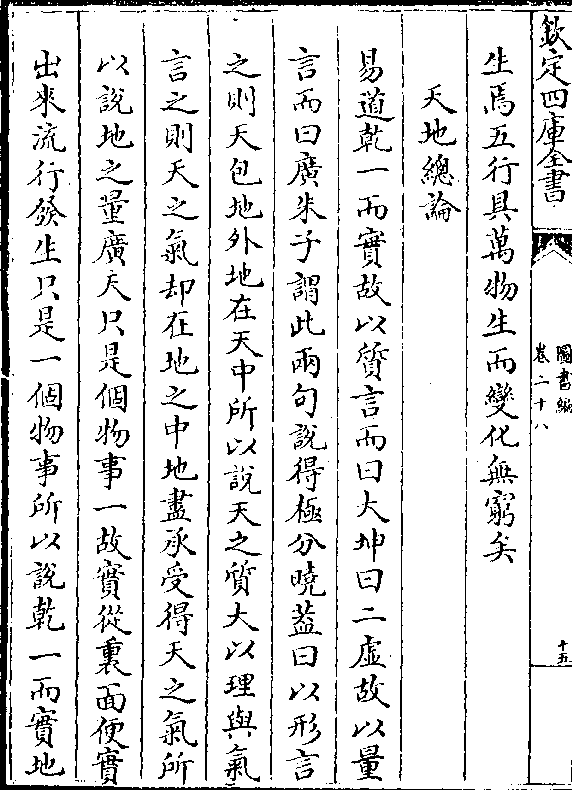 欽定四庫全書
圖書編
卷二十八
十五
生焉五行具萬物生而變化無窮矣
天地總論
易道乾一而實故以質言而曰大坤曰二虛故以量
言而曰廣朱子謂此兩句說得極分曉葢曰以形言
之則天包地外地在天中所以說天之質大以理與氣
言之則天之氣却在地之中地盡承受得天之氣所
以說地之量廣天只是個物事一故實從裏面便實
出來流行發生只是一個物事所以說乾一而實地